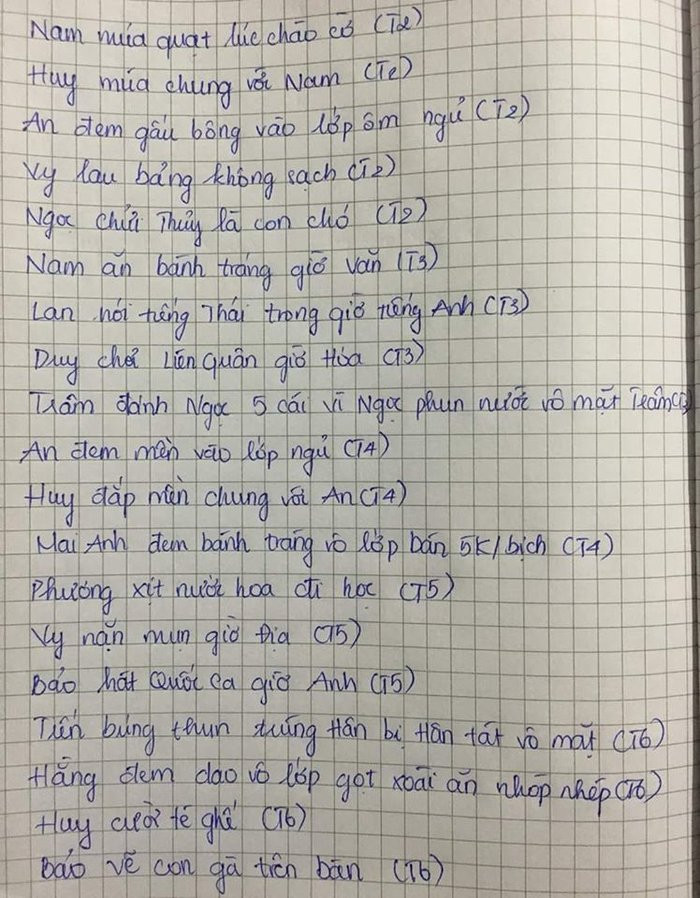 Nam múa quạt lúc chào cờ (T2)
Huy múa chung với Nam (T2)
An đem gấu bông vào lớp ôm ngủ (T2)
Vy lau bảng không sạch (T2)
Ngọc chửi Thủy là con chó (T2)
Nam ăn bánh tráng giờ Văn (T3)
Lan nói tiếng Thái trong giờ tiếng Anh (T3)
Duy chơi Liên Quân giờ Hóa (T3)
Trâm đánh Ngọc 5 cái vì Ngọc phun nước vô mặt Trâm (T3)
An đem mền vào lớp ngủ (T4)
Huy đắp mền chung với An (T4)
Mai Anh đem bánh tráng vô lớp bán 5K/bịch (T4)
Phương xịt nước hoa đi học (T5)
Vy nặn mụn giờ Địa (T5)
Bảo hát Quốc ca giờ Anh (T5)
Tiến búng thun trúng Hân bị Hân tát vô mặt (T6)
Hằng đem dao vô lớp gọt xoài ăn nhóp nhép (T6)
Huy cười té ghế (T6)
Bảo vẽ con gà trên bàn (T6)